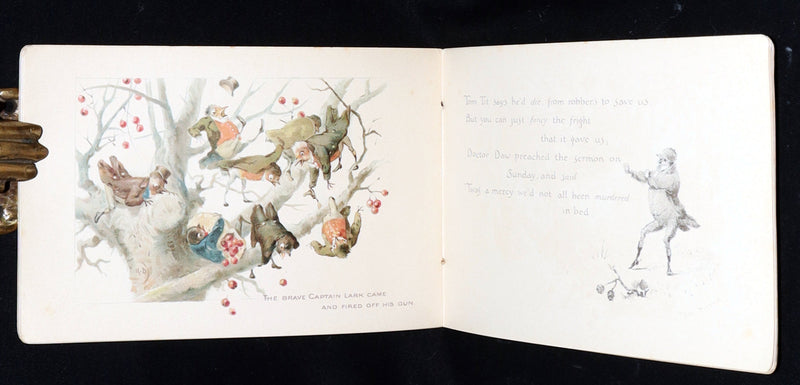 THE BRAVE CAPTAIN LARK CAME
AND FIRED OFF HIS GUN
Tom Tit says he'd die from robbers to save us
But you can just fancy the fright
that it gave us,
Doctor Daw preached the sermon on
Sunday, and said
'Twas a mercy we'd not all been murdered
in bed